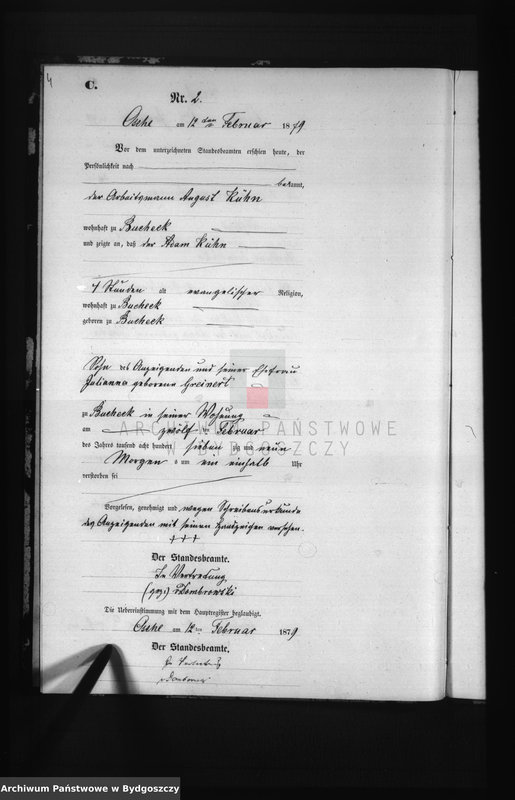 4
C.
Nr. 2.
Osche am 12ten Februar 1879
Vor dem unterzeichneten Standesbeamten erschien heute, der
Persönlichkeit nach
bekannt,
der Arbeitsmann August Kühn
wohnhaft zu Bucheck
und zeigte an, daß der Adam Kühn
4 Stunden alt evangelischer Religion,
wohnhaft zu Bucheck
geboren zu Bucheck
Sohn des Anzeigenden und seiner Ehefrau
Julianna geborene Greinert
zu Bucheck in seiner Wohnung
am zwölf ten Februar
des Jahres tausend acht hundert sieben zig und neun
Morgens um ein einhalb Uhr
verstorben sei
Vorgelesen, genehmigt und wegen Schreibensunkunde
des Anzeigenden mit seinen Handzeichen versehen.
+++
Der Standesbeamte.
In Vertretung
(gez.) vDombrowski
Die Uebereinstimmung mit dem Hauptregister beglaubigt.
Osche am 12ten Februar 1879
Der Standesbeamte.
In Vertretung
vDombrowski
ARCHIWUM PAŃSTWOWE
W BYDGOSZCZY
Archiwum Państwowe w Bydgoszczy